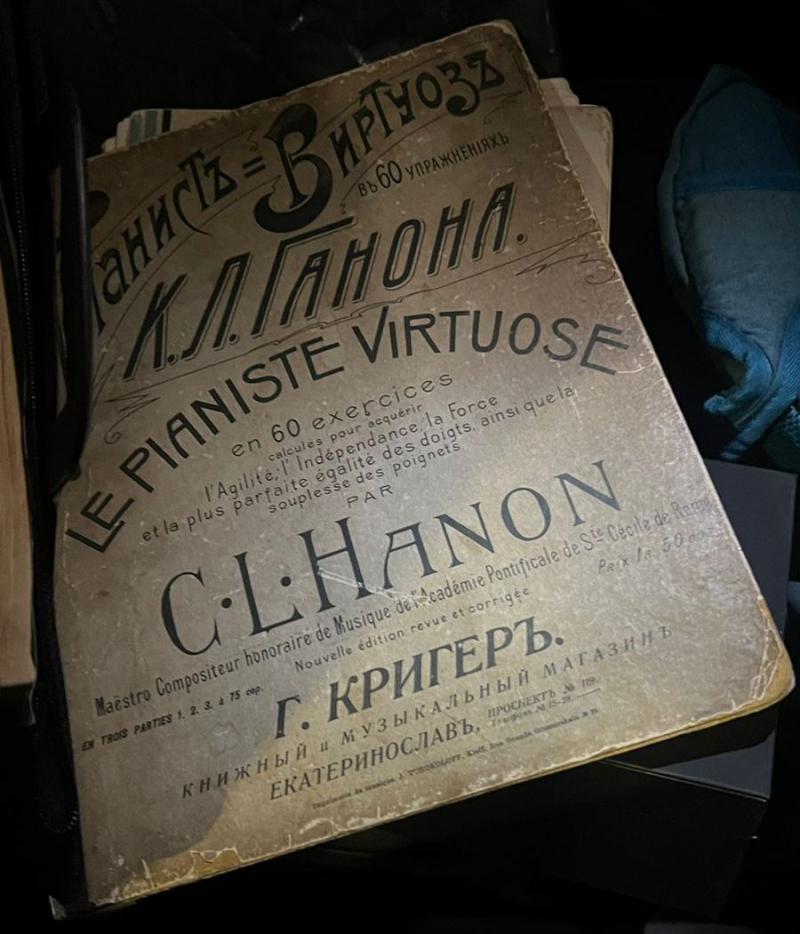 Пianистъ = Виртуозъ
въ 60 упражненiяхъ
К.Л. Ганона.
LE PIANISTE VIRTUOSE
en 60 exercices
calculés pour acquérir
l'Agilité, l'Indépendance, la Force
et la plus parfaite égalité des doigts, ainsi que la
souplesse des poignets,
PAR
C.L. HANON
Maëstro Compositeur honoraire de Musique de l'Académie Pontificale de Ste Cécile de Rome
Nouvelle édition revue et corrigée
Prix 1 r. 50
EN TROIS PARTIES 1, 2, 3, à 75 cop.
Г. КРИГЕРЪ.
КНИЖНЫЙ и МУЗЫКАЛЬНЫЙ МАГАЗИНЪ
ЕКАТЕРИНОСЛАВЪ, ПРОСПЕКТЪ № 119.
Imprimerie de musique